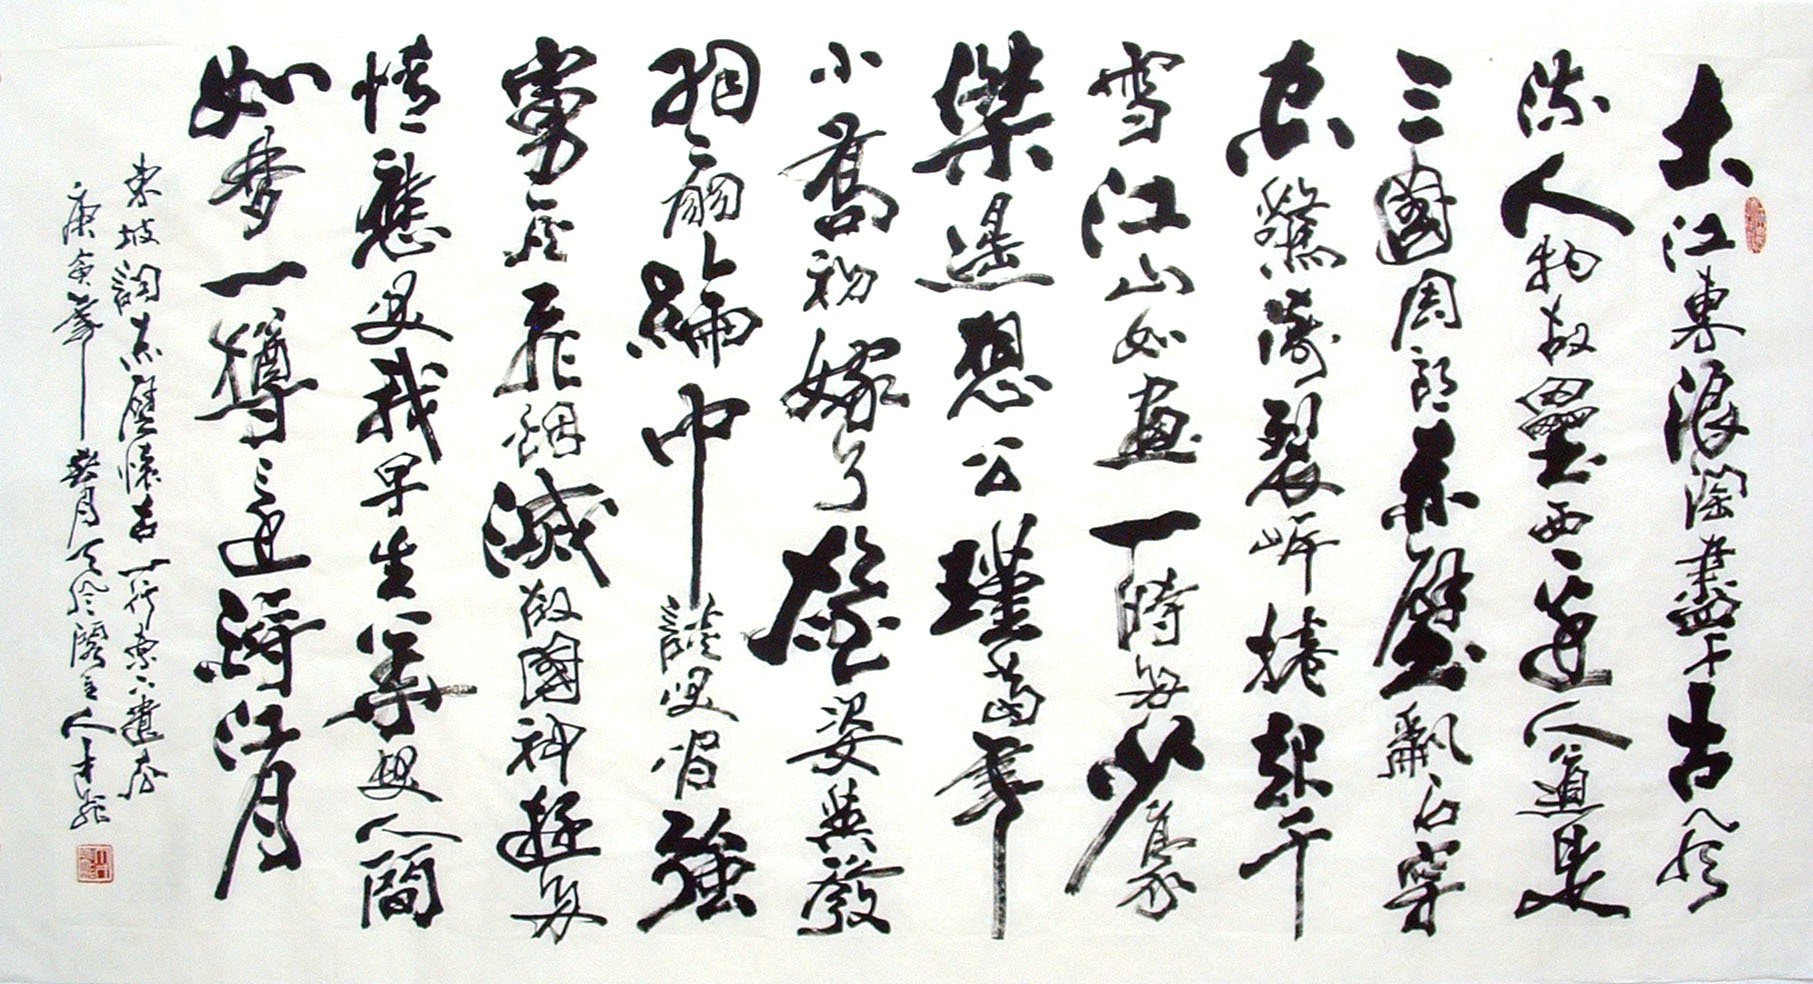 大江東浪淘盡千古風
流人物故壘西邊人道是
三國周郎赤壁亂石穿
空驚濤裂岸捲起千
雪江山如畫一時多少豪
傑遙想公瑾當年
小喬初嫁了雄姿英發
羽扇綸巾談笑間強
虜灰飛煙滅故國神遊多
情應笑我早生華髮人間
如夢一樽還酹江月
東坡詞赤壁懷古
庚寅年 月 閣主人